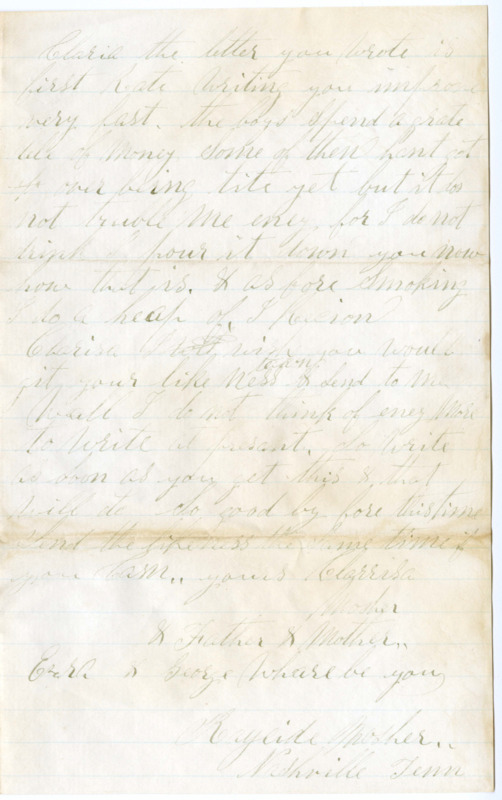 Claria the letter you wrote is
first Rate Writing you improve
very fast. the boys spend a grate
deal of Money some of then hant got
over being tite yet but it dos
not truble Me eney, for I do not
drink I pour it down you now
how that is. & as fore Smoking
I do a heap of, I Recion
Clarisa I wish you would
git your like Ness taken & Send to me
Well I do not think of eney More
to Write at presant. So Write
as soon as you get this & that
will do So good by fore this time
Sent the likeness the same time if
you Can.. yours Clarrisa
Mosher
& Father & Mother..
Ezra & George Whare be you
Mosher..
Nashville Tenn